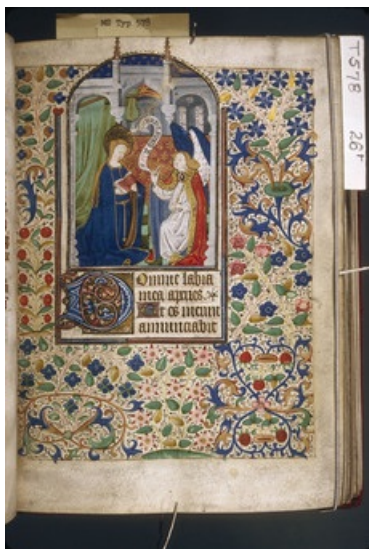 MS Typ 578
T578 26r
Domine labia
mea apries.
Et os meum
annunciabit